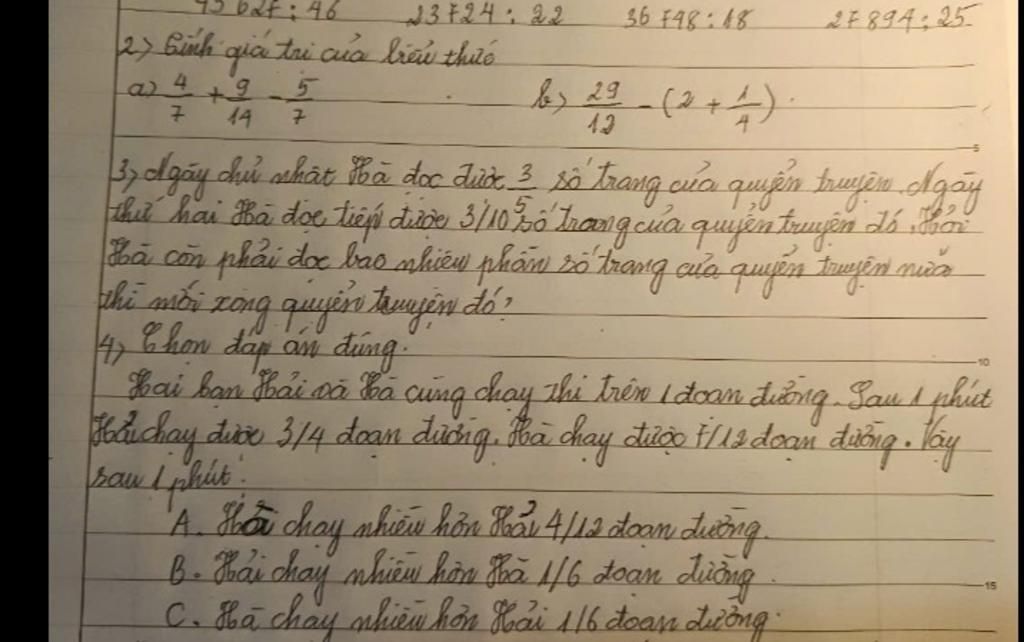 45627 : 46 23724 : 22 36748 : 18 27894 : 25
2, Tính giá trị của biểu thức
a) 4/7 + 9/14 - 5/7 b) 29/12 - (2 + 1/4).
3, Ngày chủ nhật Hà đọc được 3/5 số trang của quyển truyện. Ngày
thứ hai Hà đọc tiếp được 3/10 số trang của quyển truyện đó. Hỏi
Hà còn phải đọc bao nhiêu phần số trang của quyển truyện nữa
thì mới xong quyển truyện đó?
4, Chọn đáp án đúng.
Hai bạn Hải và Hà cùng chạy thi trên 1 đoạn đường. Sau 1 phút
Hải chạy được 3/4 đoạn đường. Hà chạy được 7/12 đoạn đường. Vậy
sau 1 phút:
A. Hà chạy nhiều hơn Hải 4/12 đoạn đường.
B. Hải chạy nhiều hơn Hà 1/6 đoạn đường.
C. Hà chạy nhiều hơn Hải 1/6 đoạn đường.
5
10
15